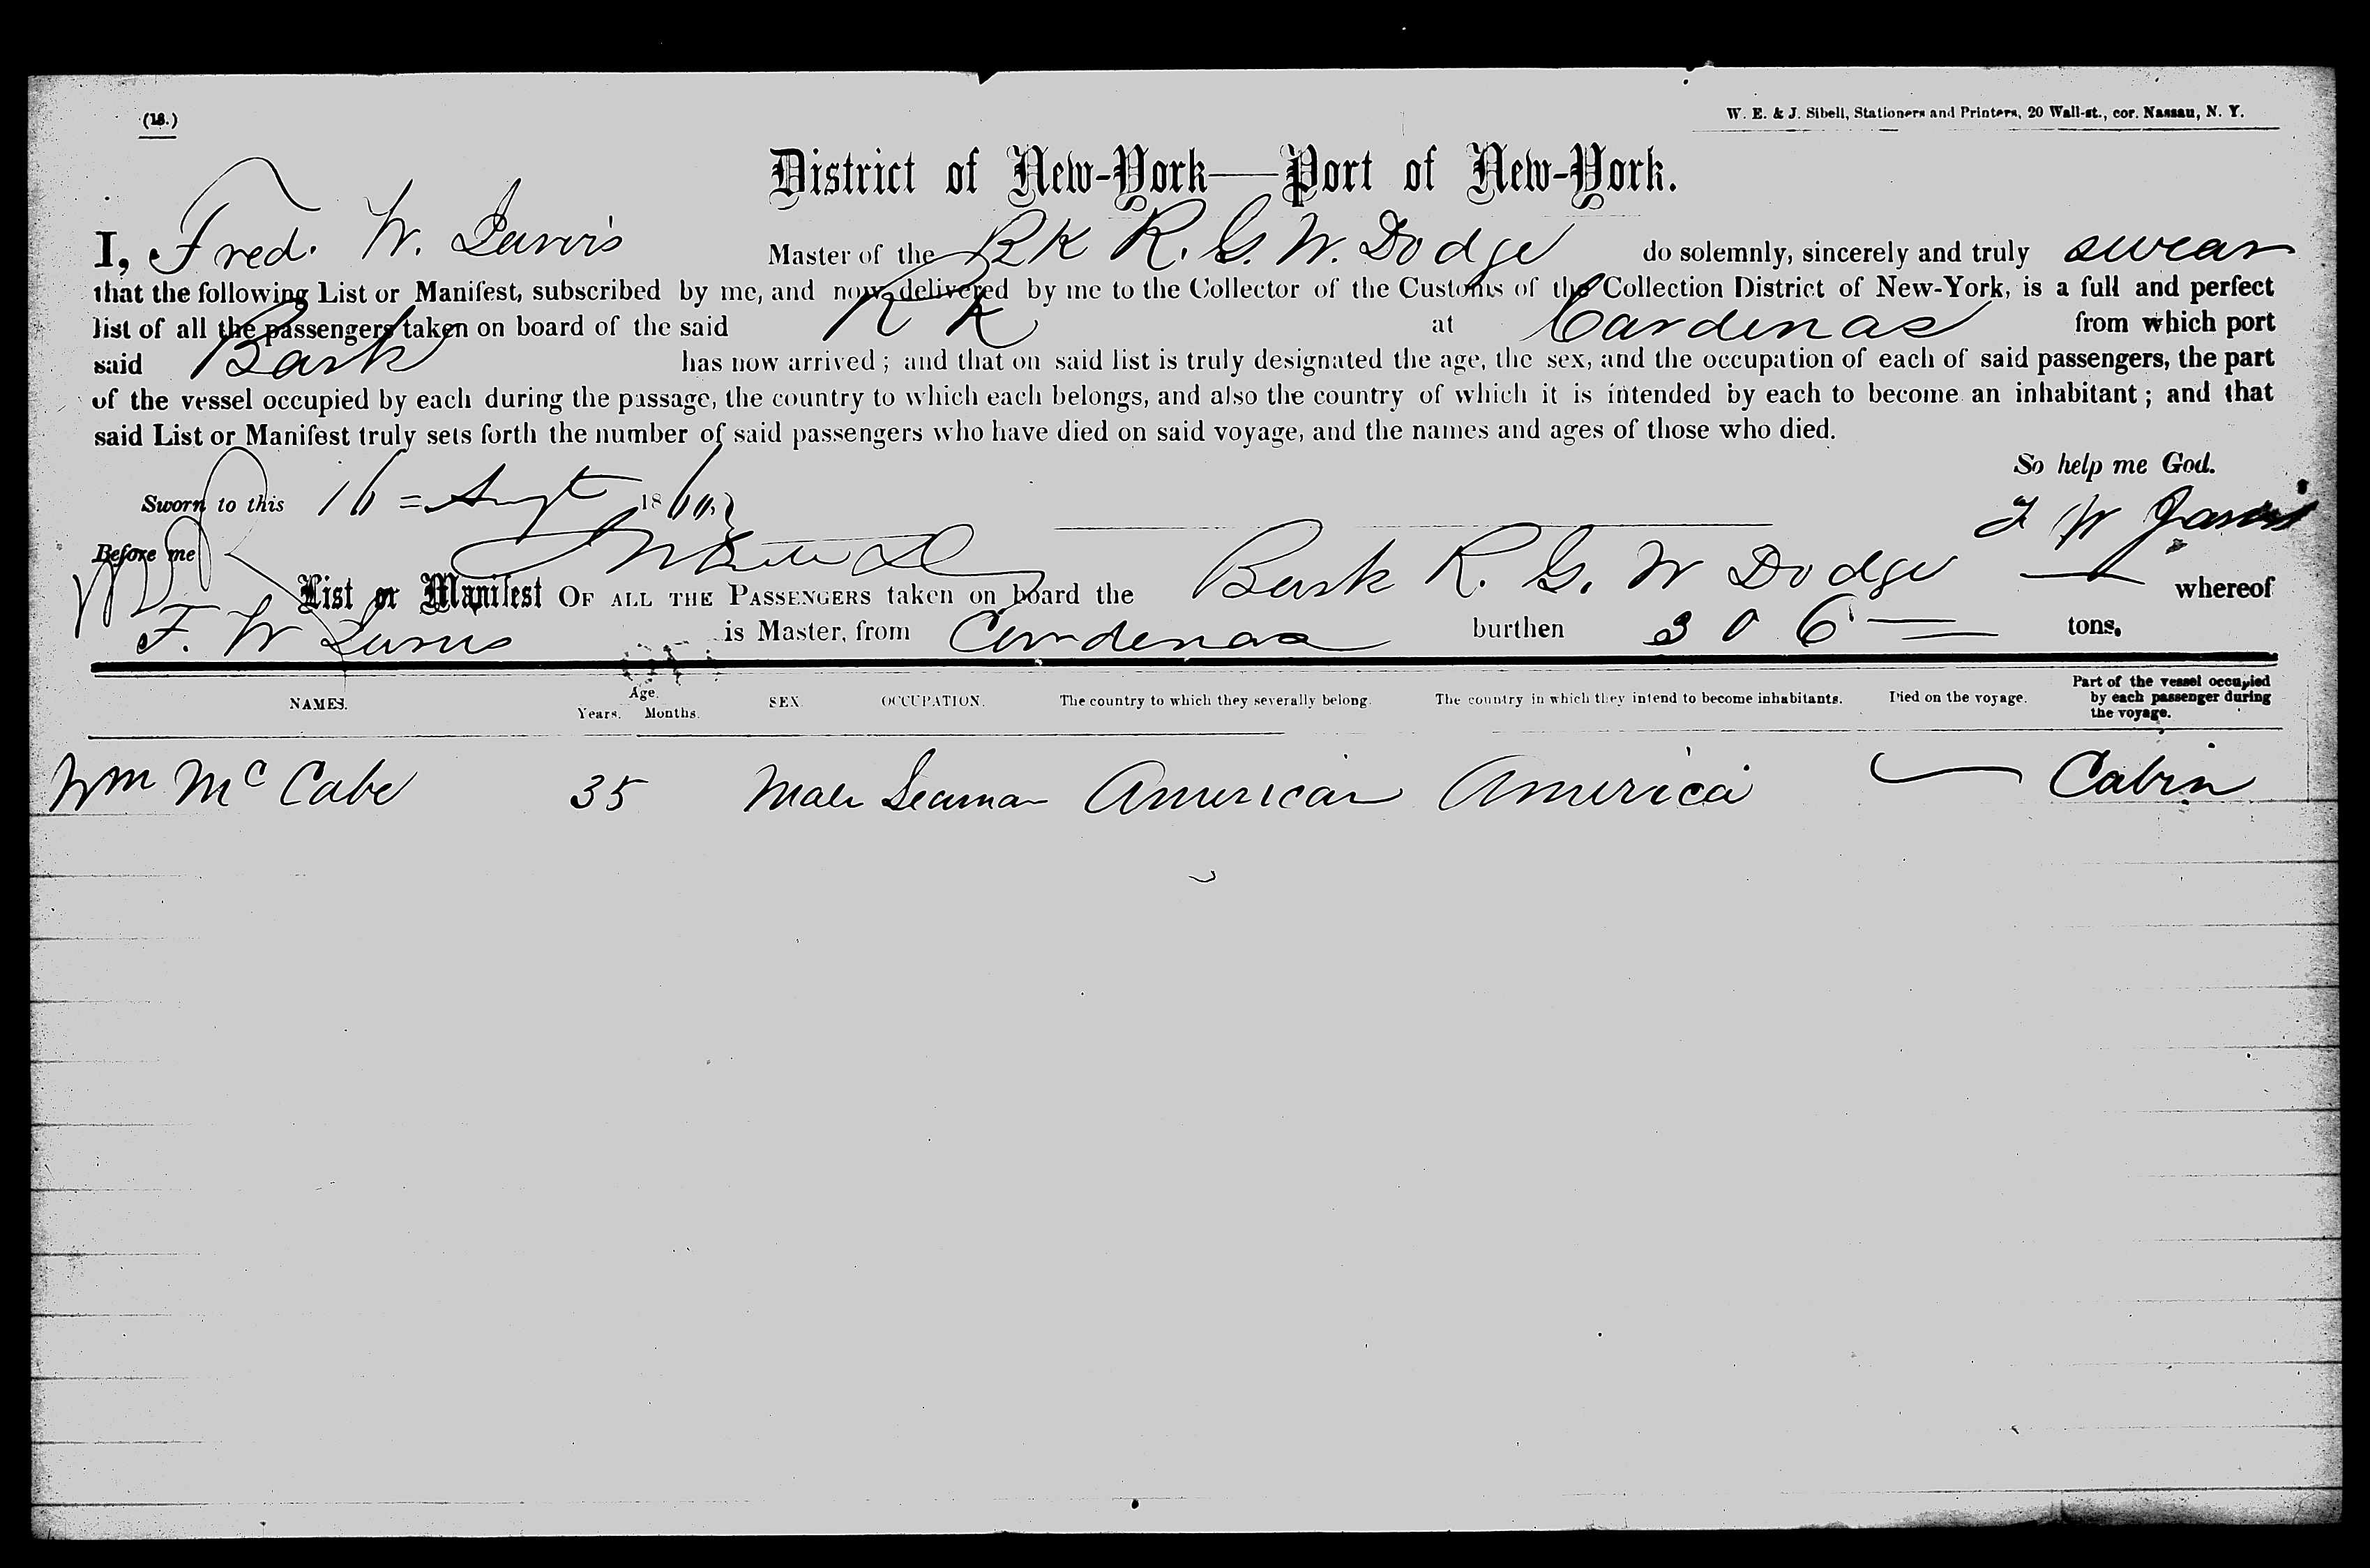 (18.)
W. E. & J. Sibell, Stationers and Printers, 20 Wall-st., cor. Nassau, N. Y.
District of New-York—Port of New-York.
I, Fred. W. Jarvis Master of the Bk R. G. W. Dodge do solemnly, sincerely and truly swear
that the following List or Manifest, subscribed by me, and now delivered by me to the Collector of the Customs of the Collection District of New-York, is a full and perfect
list of all the passengers taken on board of the said Bk at Cardenas from which port
said Bark has now arrived; and that on said list is truly designated the age, the sex, and the occupation of each of said passengers, the part
of the vessel occupied by each during the passage, the country to which each belongs, and also the country of which it is intended by each to become an inhabitant; and that
said List or Manifest truly sets forth the number of said passengers who have died on said voyage, and the names and ages of those who died.
So help me God.
Sworn to this 16 = Augt 186
F W Jarvis
Before me
List or Manifest OF ALL THE PASSENGERS taken on board the Bark R. G. W Dodge — whereof
F. W Jarvis is Master, from Cardenas burthen 306 tons.
NAMES. Age. Years. Months. SEX. OCCUPATION. The country to which they severally belong. The country in which they intend to become inhabitants. Died on the voyage. Part of the vessel occupied by each passenger during the voyage.
Wm McCabe 35 Male Seaman American America — Cabin